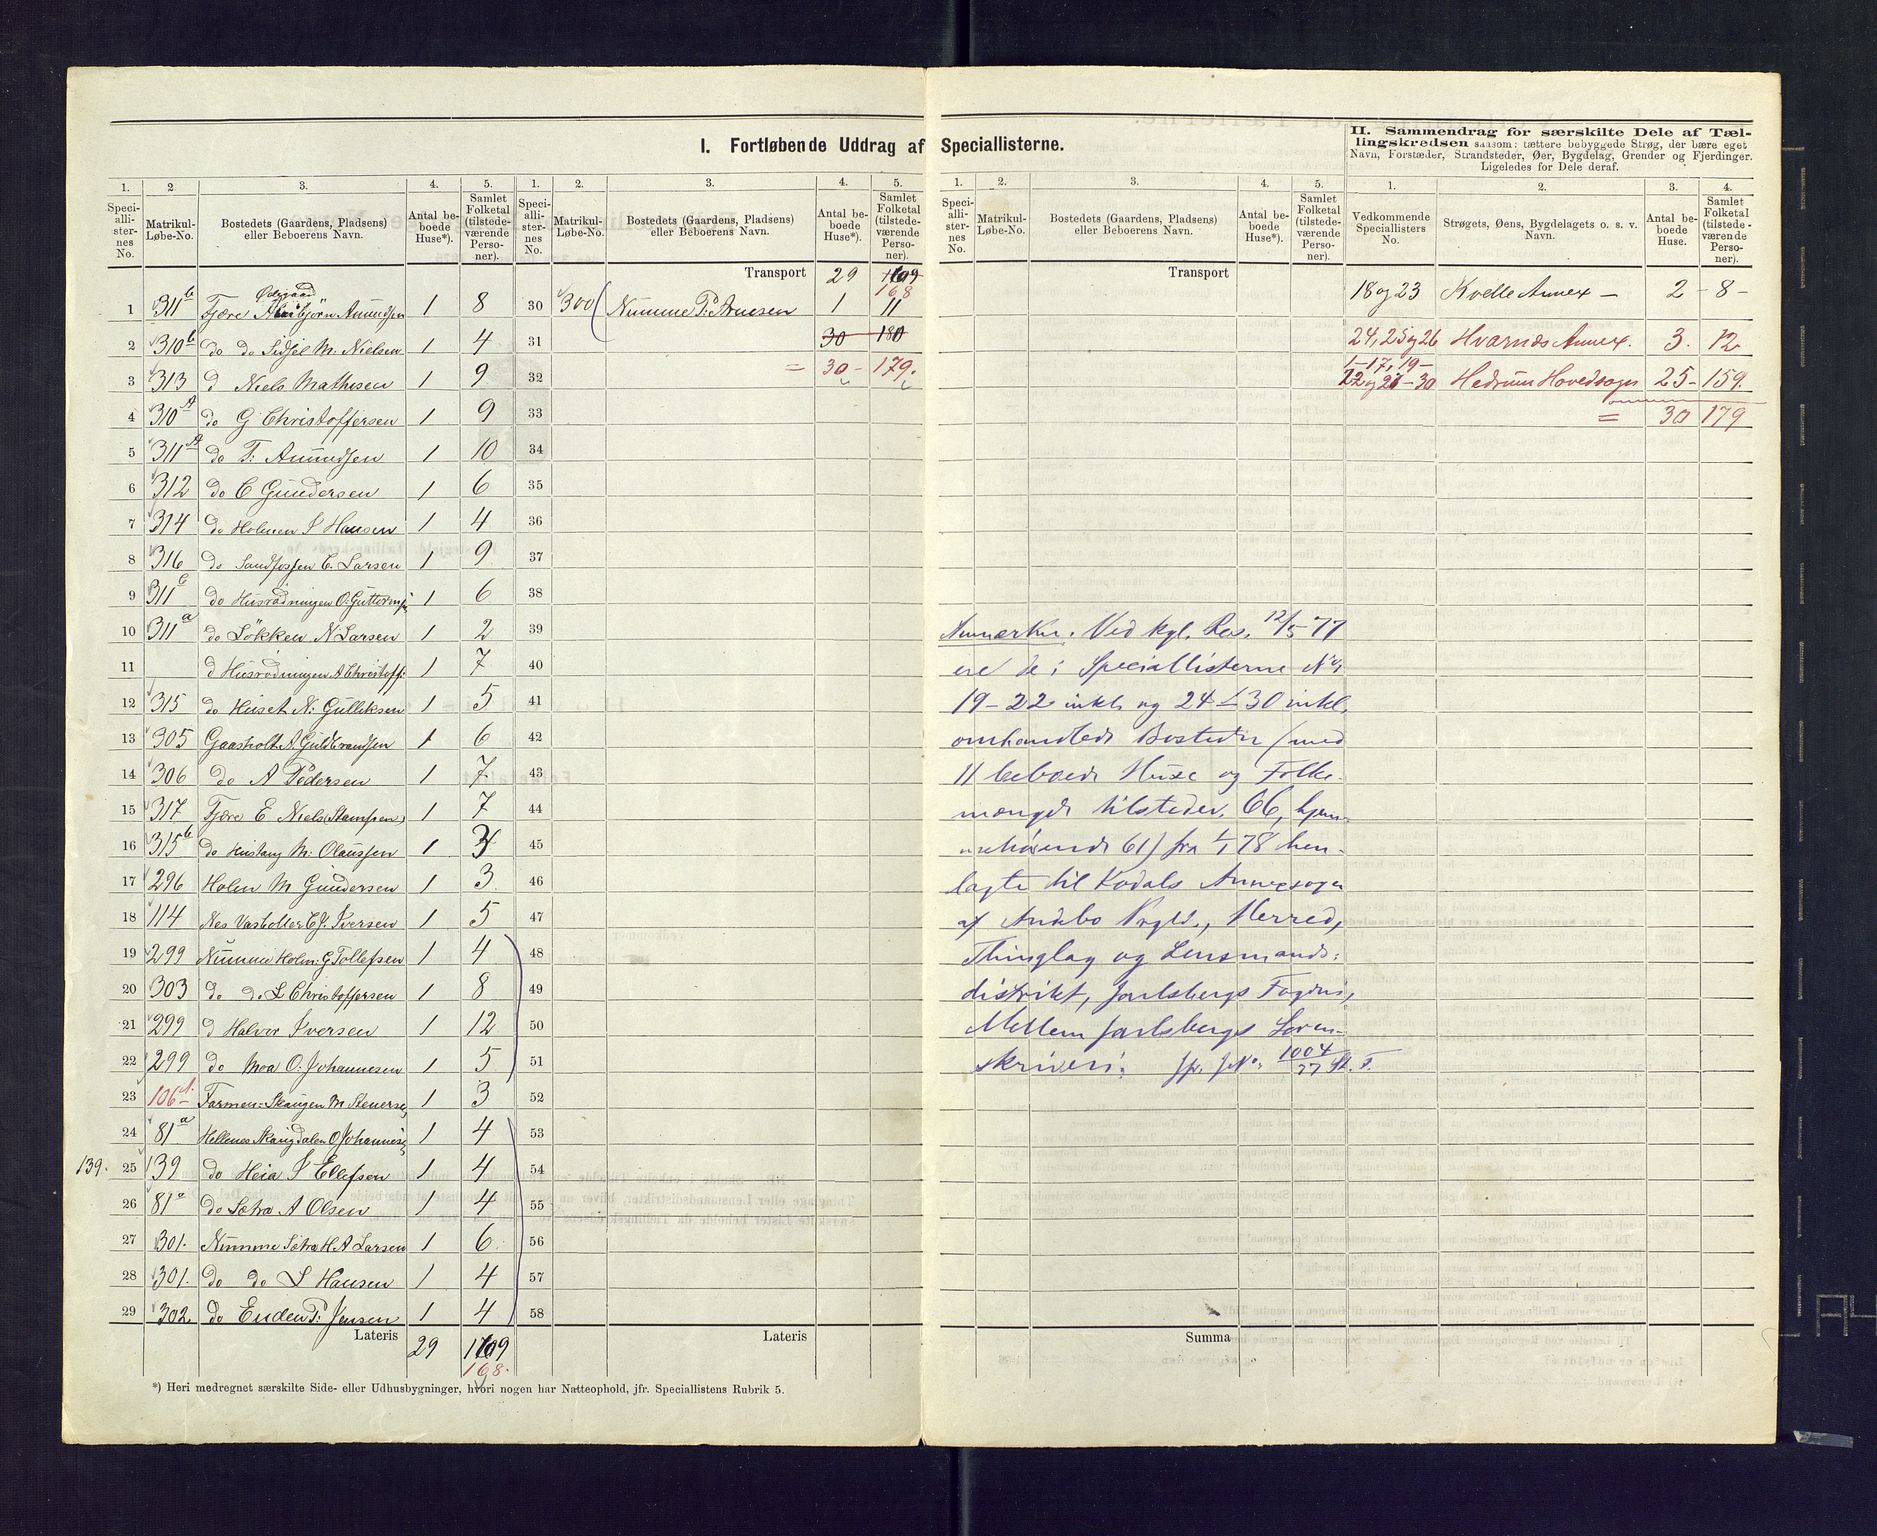 I. Fortløbende Uddrag af Speciallisterne.
II. Sammendrag for særskilte Dele af Tællingskredsen saasom: tættere bebyggede Strøg, der bære eget
Navn, Forstæder, Strandsteder, Øer, Bygdelag, Grender og Fjerdinger.
Ligeledes for Dele deraf.
1. 2 3. 4. 5. 1. 2. 3. 4. 5. 1. 2. 3. 4. 5. 1. 2. 3. 4.
Speciallisternes No. Matrikul-Løbe-No. Bostedets (Gaardens, Pladsens) eller Beboerens Navn. Antal beboede Huse*). Samlet Folketal (tilstedeværende Personer).
Speciallisternes No. Matrikul-Løbe-No. Bostedets (Gaardens, Pladsens) eller Beboerens Navn. Antal beboede Huse*). Samlet Folketal (tilstedeværende Personer).
Speciallisternes No. Matrikul-Løbe-No. Bostedets (Gaardens, Pladsens) eller Beboerens Navn. Antal beboede Huse*). Samlet Folketal (tilstedeværende Personer).
Vedkommende Speciallisters No. Strøgets, Øens, Bygdelagets o. s. v. Navn. Antal beboede Huse. Samlet Folketal (tilstedeværende Personer).
1 311b Fjære Ødegaard Amundsen 1 8
2 310b do do Sidsel M. Nielsen 1 4
3 313 d Niels Mathisen 1 9
4 310A do G Christoffersen 1 9
5 311A do T: Amundsen 1 10
6 312 do C Gundersen 1 6
7 314 do Holmen S Hansen 1 4
8 316 do Sandfossen C. Larsen 1 9
9 311c do Husrødningen O: Guttorms 1 6
10 311a do Løkken N Larsen 1 2
11 d Husrødningen A Christoff: 1 7
12 315 do Huset N: Gulliksen 1 5
13 305 Gaasholt A. Guldbrandsen 1 6
14 306 do A Pedersen 1 7
15 317 Fjære E Niels (Stampen) 1 7
16 315b do M: Olaussen 1 3
17 296 Holm M Gundersen 1 3
18 114 Nes Vasbotten J. Iversen 1 5
19 299 Numme Holm: G Tollefsen 1 4
20 303 do do L Christoffersen 1 8
21 299 d Halvor Iversen 1 12
22 299 do Moa O: Johannesen 1 5
23 106A. Farmen: Skaugen M 1 3
24 81a Hellenes Skaugdalen O Johannes 1 4
139. 25 139 do Heia S Ellefsen 1 4
26 81a do Sætra A Olsen 1 4
27 301. Numme Sætra H A Larsen 1 6
28 301. do do L Hansen 1 4
29 302. do Enden P: Jensen 1 4
Lateris 29 169
168.
*) Heri medregnet særskilte Side- eller Udhusbygninger, hvori nogen har Natteophold, jfr. Speciallistens Rubrik 5.
Transport 29 169
168
30 300 Numme P: Arnesen 1 11
31 30 180
32 = 30 - 179.
33
34
35
36
37
38
39
40
41
42
43
44
45
46
47
48
49
50
51
52
53
54
55
56
57
58
Lateris
Transport
Anmærkn. Ved kgl. Res. 12/5 77
ere de i Speciallisterne No
19-22 inkl. og 24-30 inkl.
omhandlede Bosteder (med
11 beboede Huse og Folke-
mængde tilstedev. 66, hjem-
mehørende 61) fra 1/1 78 hen-
lagte til Kodals Annexsogn
af Andebo Prgld., Herred,
Thinglag og Lensmands-
distrikt, Jarlsbergs Fogderi,
Mellem Jarlsbergs Soren-
skriveri. Jfr. J No. 1004/77
Summa
18 og 23 Kvelle Annex - 2 - 8 -
24, 25 og 26 Hvarnæs Annex. 3. 12
1-17, 19-
22 og 27-30 Hedrum Hovedsogn 25 - 159.
= 30 179